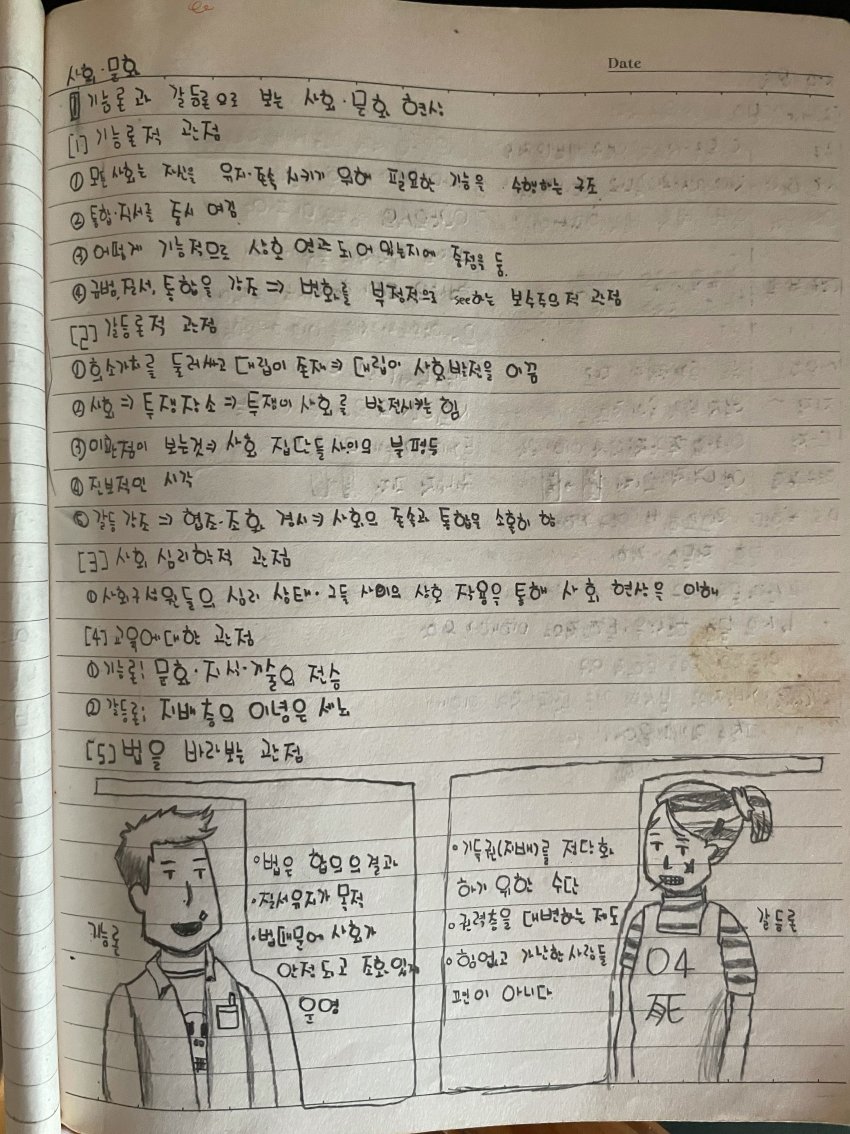 Date
사회·문화
1 기능론과 갈등론으로 보는 사회·문화 현상
[1] 기능론적 관점
① 모든 사회는 자신을 유지·존속 시키기 위해 필요한 기능을 수행하는 구조
② 통합·질서를 중시 여김
③ 어떻게 기능적으로 상호 연관 되어 있는지에 중점을 둠.
④ 규범, 질서, 통합을 강조 ⇒ 변화를 부정적으로 see하는 보수주의적 관점
[2] 갈등론적 관점
① 희소가치를 둘러싸고 대립이 존재 ⇒ 대립이 사회발전을 이끔
② 사회 ⇒ 투쟁장소 ⇒ 투쟁이 사회를 발전시키는 힘
③ 이관점이 보는것 ⇒ 사회 집단들 사이의 불평등
④ 진보적인 시각
⑤ 갈등 강조 ⇒ 협조·조화 경시 ⇒ 사회의 존속과 통합을 소홀히 함
[3] 사회 심리학적 관점
① 사회구성원들의 심리 상태·그들 사이의 상호 작용을 통해 사회 현상을 이해
[4] 교육에대한 관점
① 기능론; 문화·지식·기술의 전승
② 갈등론; 지배층의 이념을 세뇌
[5] 법을 바라보는 관점
기능론
•법은 합의의 결과
•질서유지가 목적
•법때문에 사회가
안정되고 조화있게
운영
•기득권(지배)를 정당화
하기 위한 수단
•권력층을 대변하는 제도
•힘없고 가난한 사람들
편이 아니다
갈등론
04
死